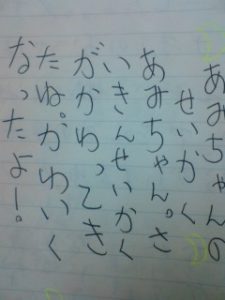 あみちゃんの
せいかく
あみちゃん。さ
いきんせいかく
がかわってき
たね。かわいく
なったよー。